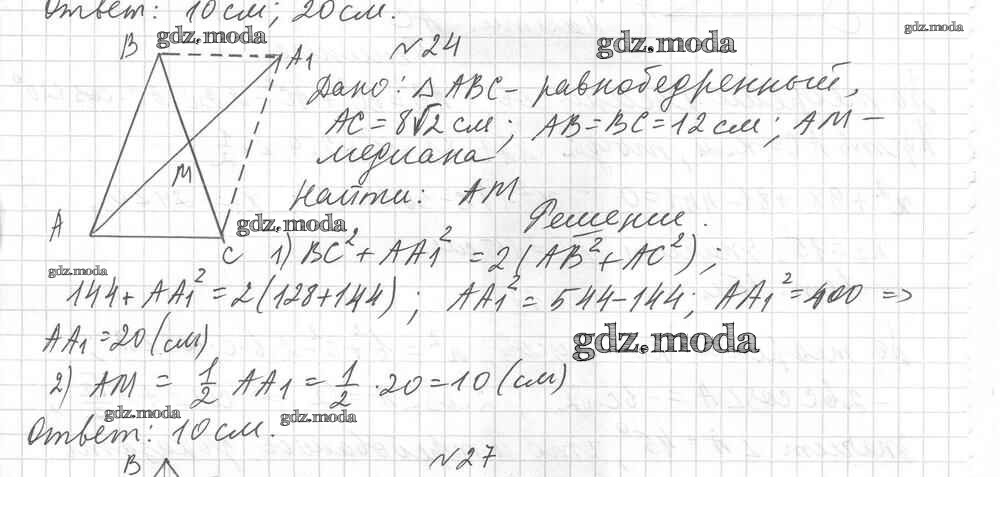 Ответ: 10 см; 20 см.
gdz.moda
B
A₁
№24
gdz.moda
gdz.moda
Дано: △ABC – равнобедренный,
AC = 8√2 см; AB = BC = 12 см; AM –
медиана
M
Найти: AM
A
gdz.moda
Решение.
C 1) BC² + AA₁² = 2(AB² + AC²);
gdz.moda
144 + AA₁² = 2(128 + 144); AA₁² = 544 – 144; AA₁² = 400 =>
AA₁ = 20 (см)
gdz.moda
2) AM = 1/2 AA₁ = 1/2 · 20 = 10 (см)
gdz.moda
gdz.moda
Ответ: 10 см.
B
№27